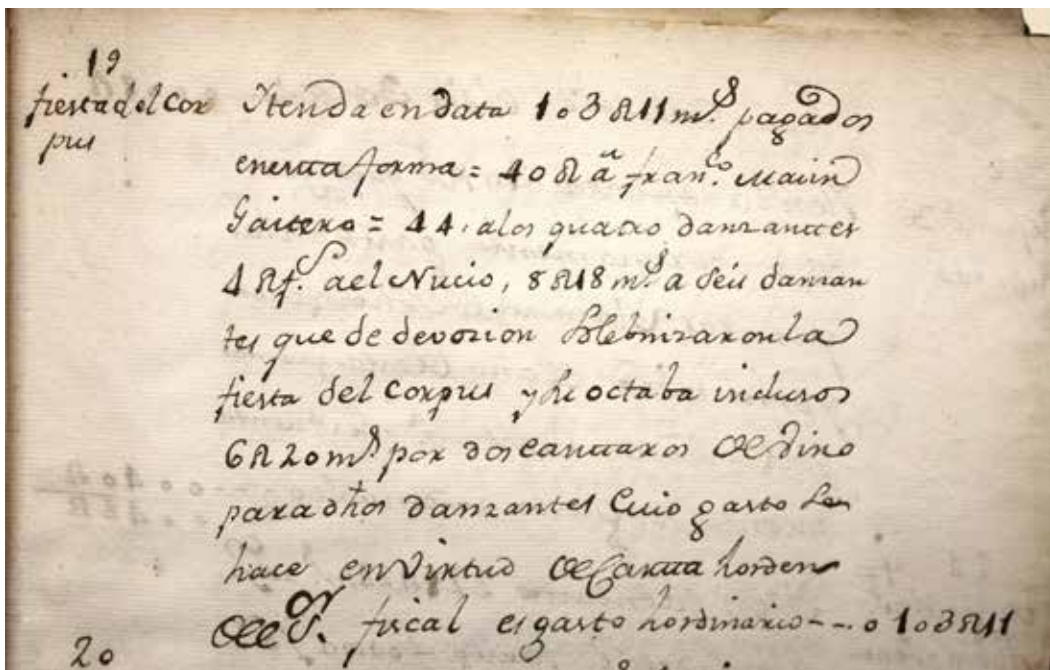 19
fiesta del Cor
pus
Yten da en data 103 R 11 mrs. pagados
en esta forma = 40 R a franco. Marin
Gaitero = 44. a los quatro danzantes
4 Rs. a el Nucio, 8 R 18 ms. a seis danzan
tes que de devozion Solebnizaron la
fiesta del Corpus y su octaba inclusos
6 R 20 ms por dos cantaros de vino
para dhos danzantes Cuio gasto se
hace en virtud de Carta horden
de el Sr. fiscal es gasto hordinario--.0103 R 11
20